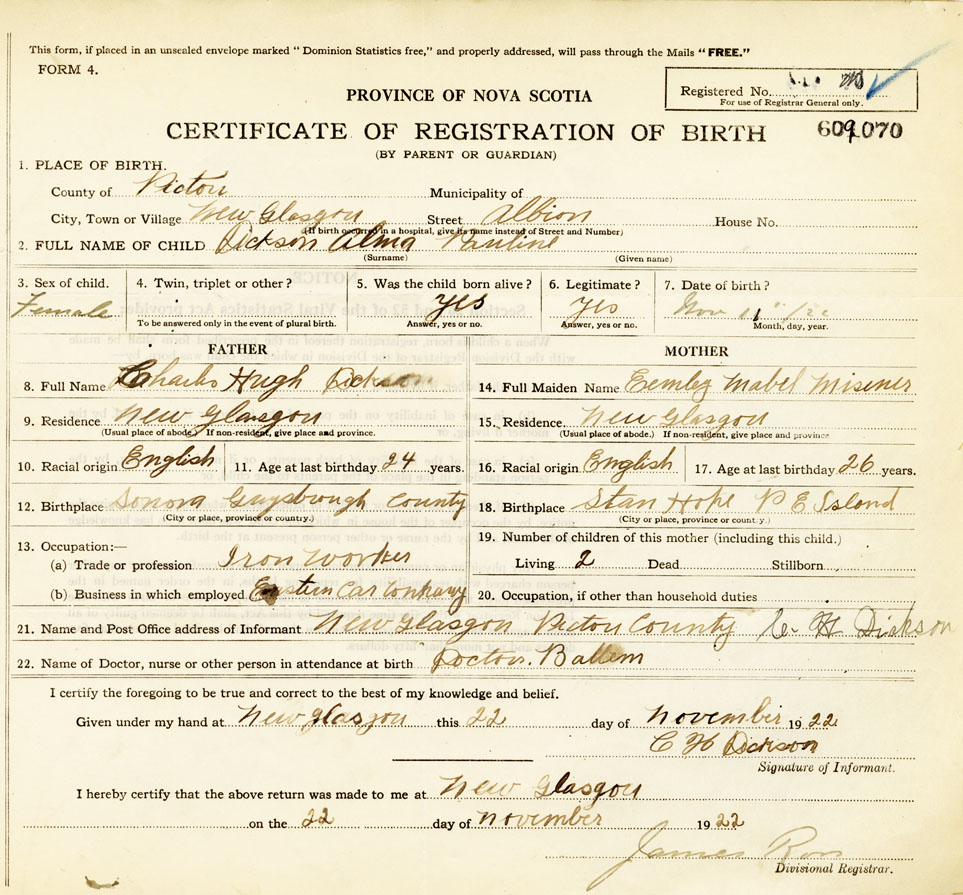 This form, if placed in an unsealed envelope marked "Dominion Statistics free," and properly addressed, will pass through the Mails "FREE."
FORM 4.
Registered No.
For use of Registrar General only.
PROVINCE OF NOVA SCOTIA
CERTIFICATE OF REGISTRATION OF BIRTH 609,070
(BY PARENT OR GUARDIAN)
1. PLACE OF BIRTH.
County of Pictou Municipality of
City, Town or Village New Glasgow Street Albion House No.
(If birth occurred in a hospital, give its name instead of Street and Number)
2. FULL NAME OF CHILD Dickson Alma Pauline
(Surname) (Given name)
3. Sex of child. 4. Twin, triplet or other? 5. Was the child born alive? 6. Legitimate? 7. Date of birth?
Female yes yes Nov 11
To be answered only in the event of plural birth. Answer, yes or no. Answer, yes or no. Month, day, year.
FATHER MOTHER
8. Full Name Charles Hugh Dickson 14. Full Maiden Name Eemley Mabel Misener
9. Residence New Glasgow 15. Residence New Glasgow
(Usual place of abode.) If non-resident, give place and province. (Usual place of abode.) If non-resident, give place and province
10. Racial origin English 11. Age at last birthday 24 years. 16. Racial origin English 17. Age at last birthday 26 years.
12. Birthplace Sonora Guysbrough County 18. Birthplace Stan Hope P E Island
(City or place, province or country.) (City or place, province or country.)
13. Occupation:— 19. Number of children of this mother (including this child.)
(a) Trade or profession Iron Worker Living 2 Dead Stillborn
(b) Business in which employed Eastern Car Company 20. Occupation, if other than household duties
21. Name and Post Office address of Informant New Glasgow Pictou County C. H Dickson
22. Name of Doctor, nurse or other person in attendance at birth Doctor. Ballem
I certify the foregoing to be true and correct to the best of my knowledge and belief.
Given under my hand at New Glasgow this 22 day of November 1922
C H Dickson
Signature of Informant.
I hereby certify that the above return was made to me at New Glasgow
on the 22 day of November 1922
James Ross
Divisional Registrar.